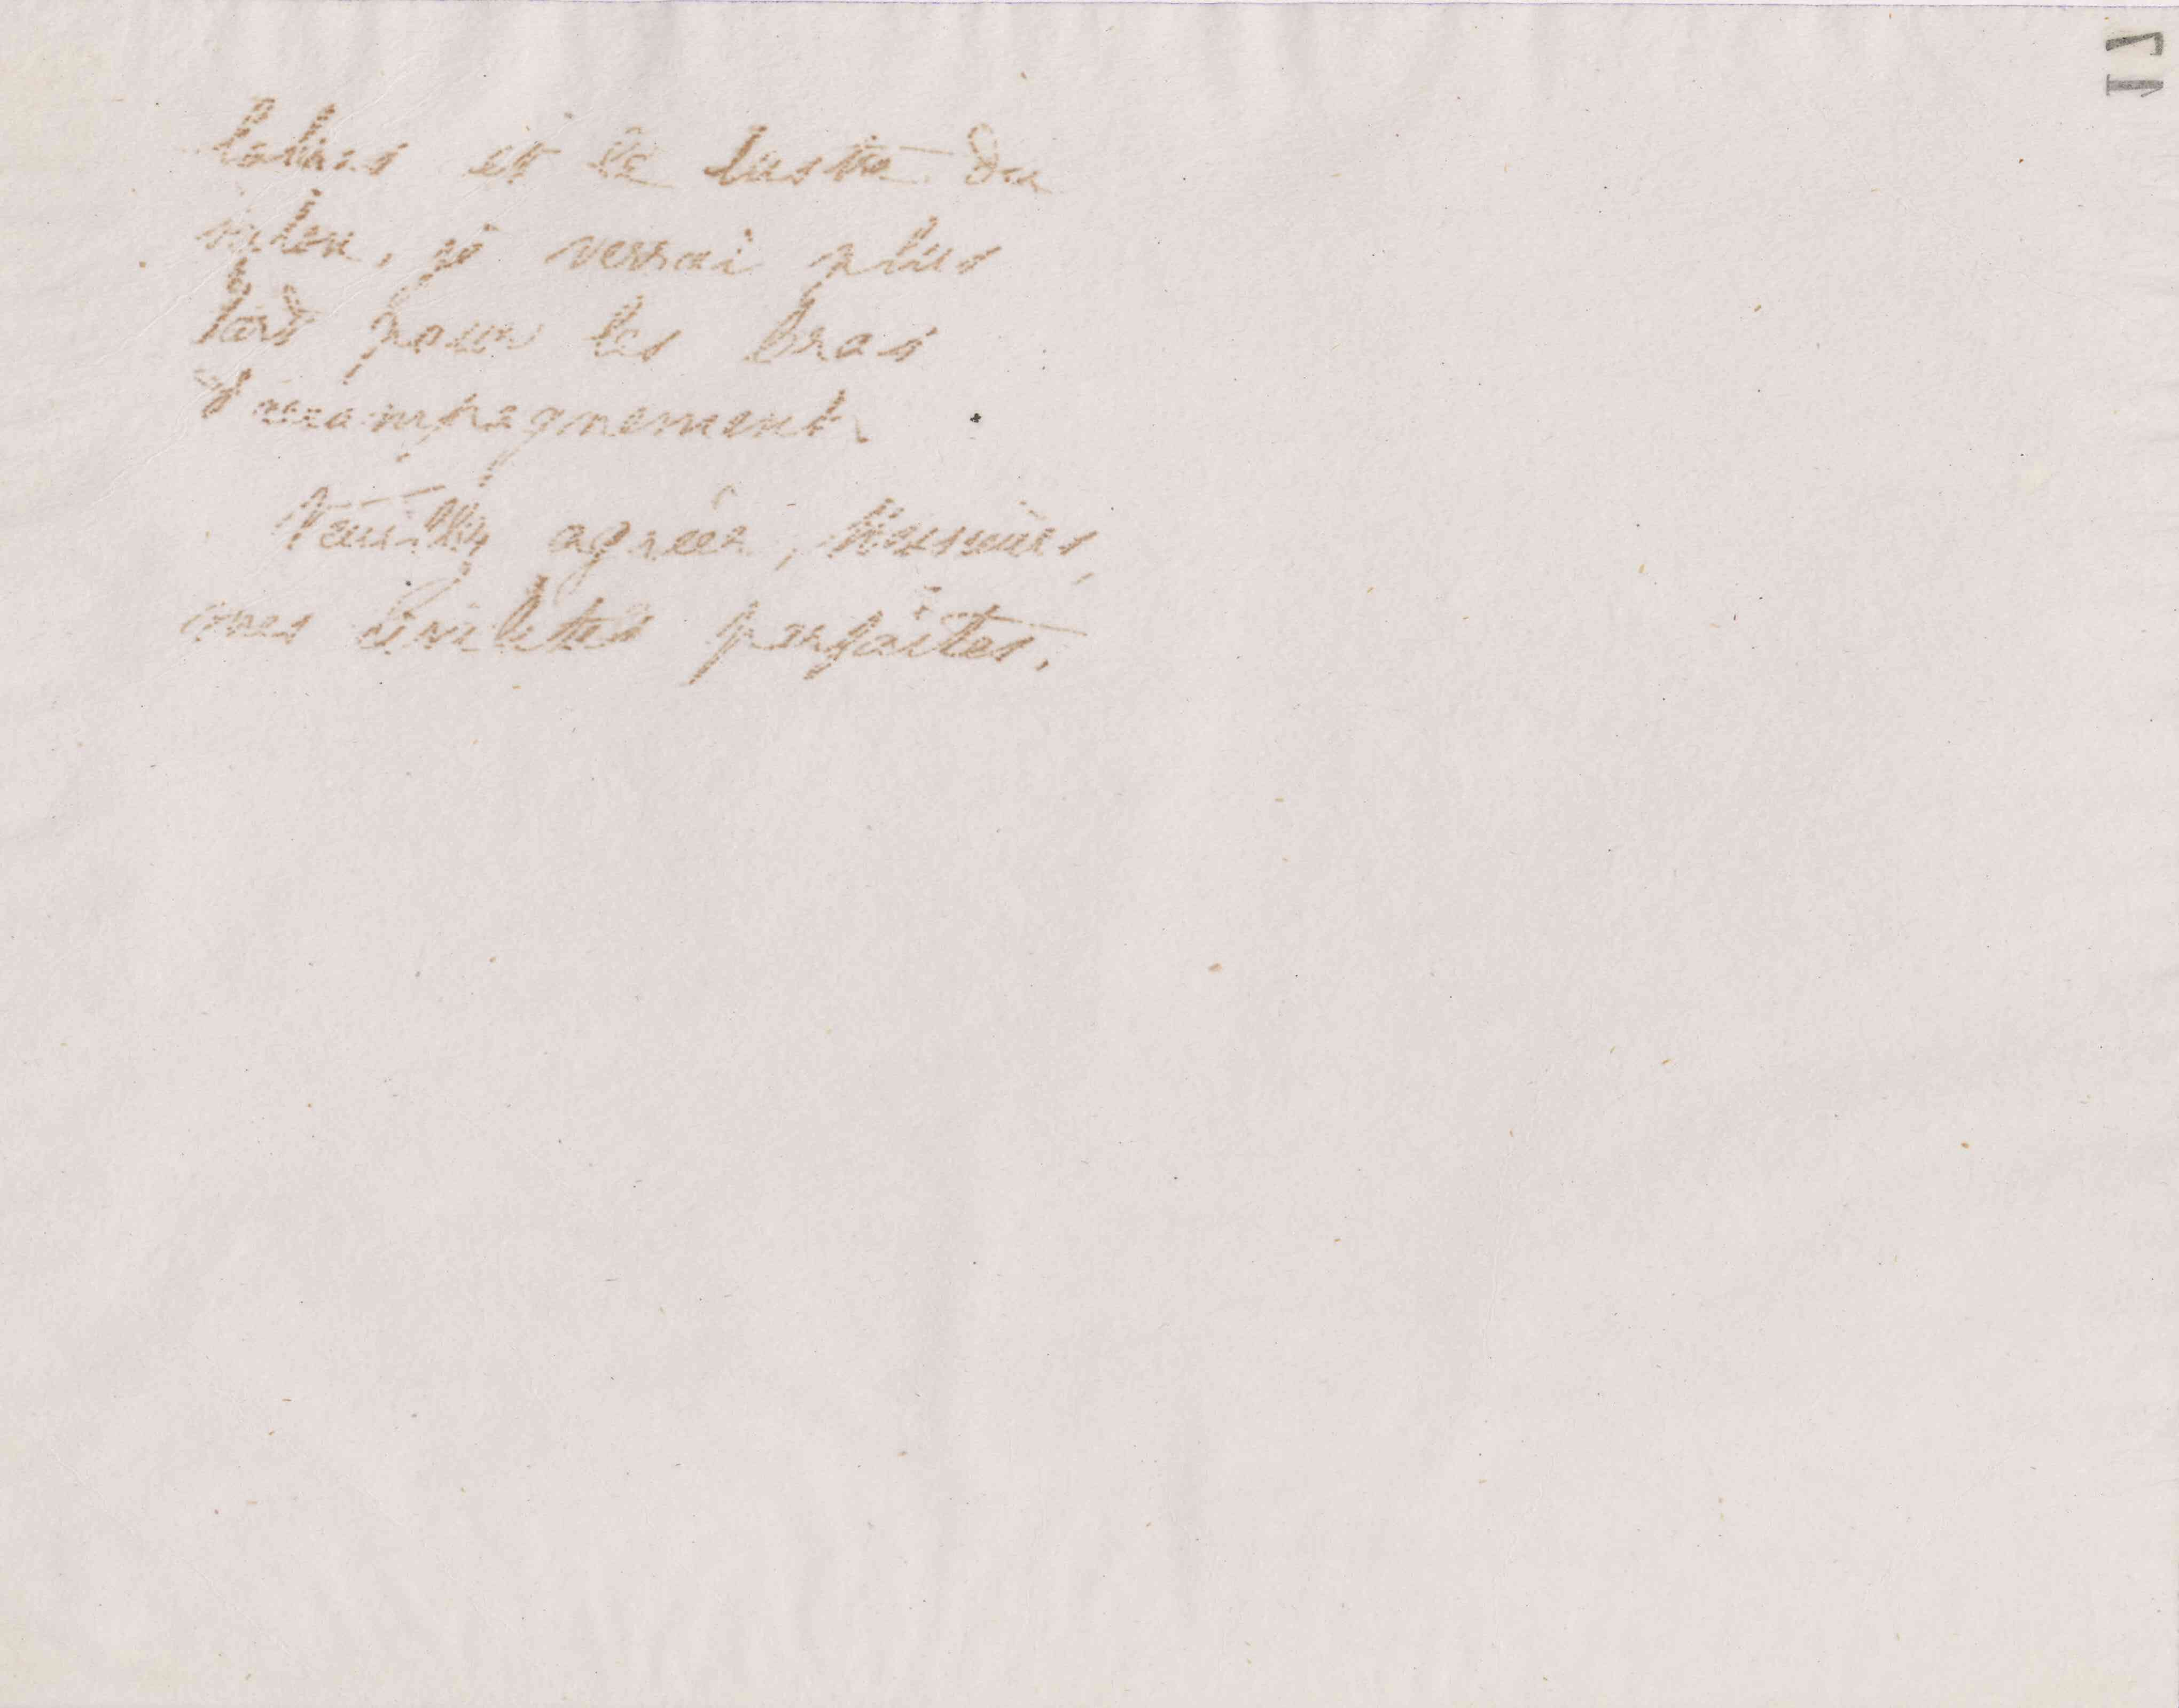 et le lustre du
salon, je verrai plus
tard pour les bras
d'accompagnement.
Veuillez agréer, Messieurs,
mes civilités parfaites.